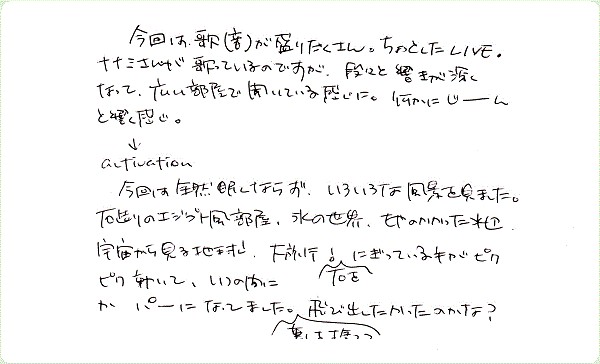 今回は、歌(音)が盛りだくさん。ちょっとしたLIVE。
ナナミさんが歌っているのですが、段々と響きが深く
なって、広い部屋で聞いている感じに。何かにじーーん
と響く感じ。
↓
activation
今回は全然眠くならず、いろいろな風景を見ました。
石造りのエジプト風部屋、氷の世界、もやのかかった
宇宙から見る地球! 大旅行! にぎっている手がピク
石を
ピク動いて、いつの間に
か パーになってました。飛び出したかったのかな?